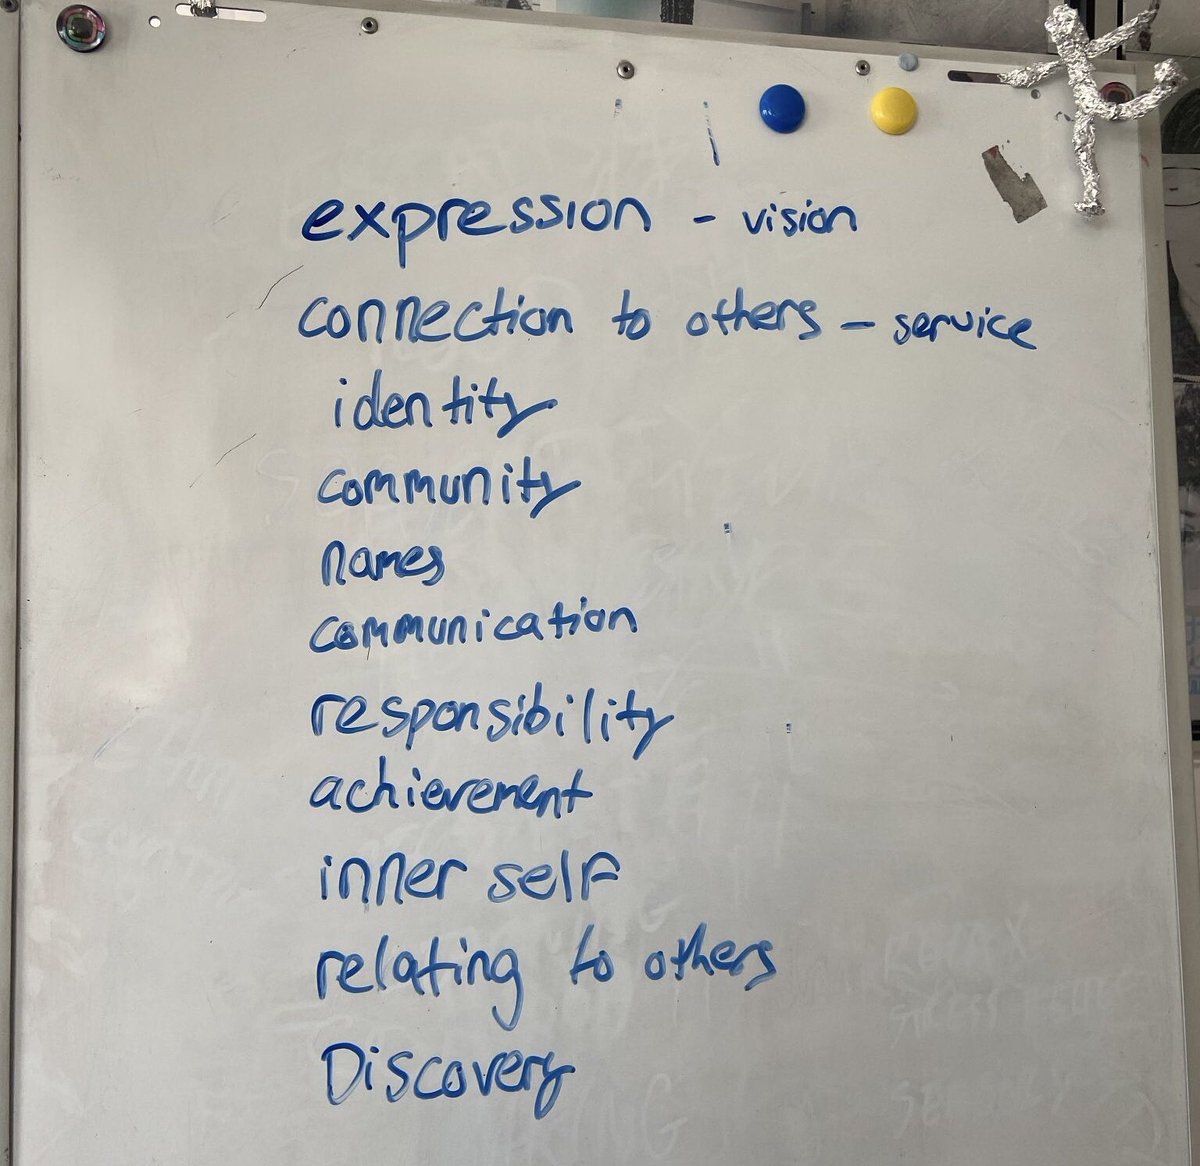 expression - vision
connection to others - service
identity
community
names
communication
responsibility
achievement
inner self
relating to others
Discovery